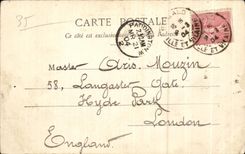 35
CARTE POSTALE
Ce côté est exclusivement
PADDINGTON
Master Aris. Mouzin
58, Langaster Gate,
Hyde Park
London
England.